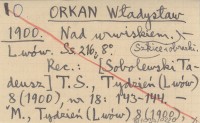 O ORKAN Władysław
1900. Nad urwiskiem.
Lwów. Ss 216, 8° Szkice i obrazki.
Rec.: [Sobolewski Ta-
deusz] T.S., Tydzień (Lwów)
8 (1900), nr 18: 143-144. —
M., Tydzień (Lwów) 8 (1900),